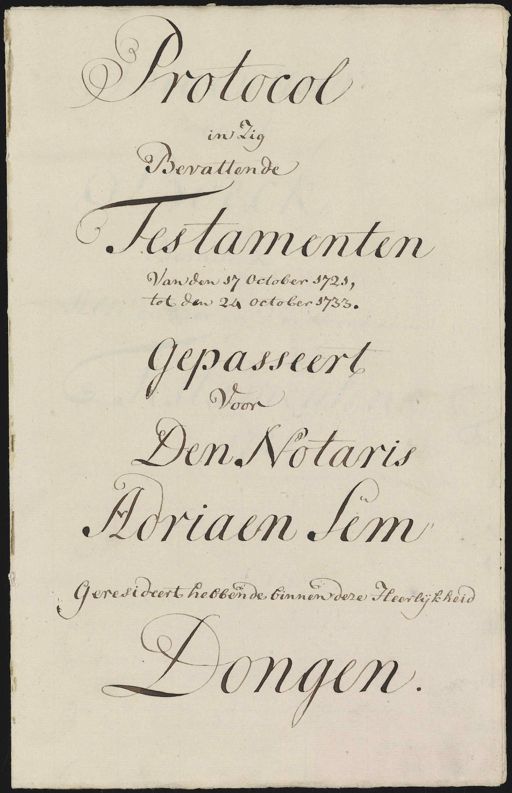 Protocol
in Zig
Bevattende
Testamenten
Van den 17 October 1721,
tot den 24 October 1733.
Gepasseert
Voor
Den Notaris
Adriaen Sem
Geresideert hebbende binnen deze Heerlijkheid
Dongen.